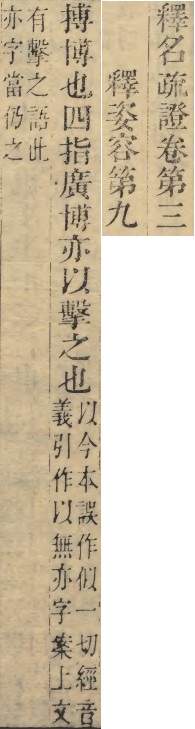 釋名疏證卷第三
釋姿容第九
搏博也四指廣博亦以擊之也
以今本誤作似一切經音
義引作以無亦字案上文
有擊之語此
亦字當仍之